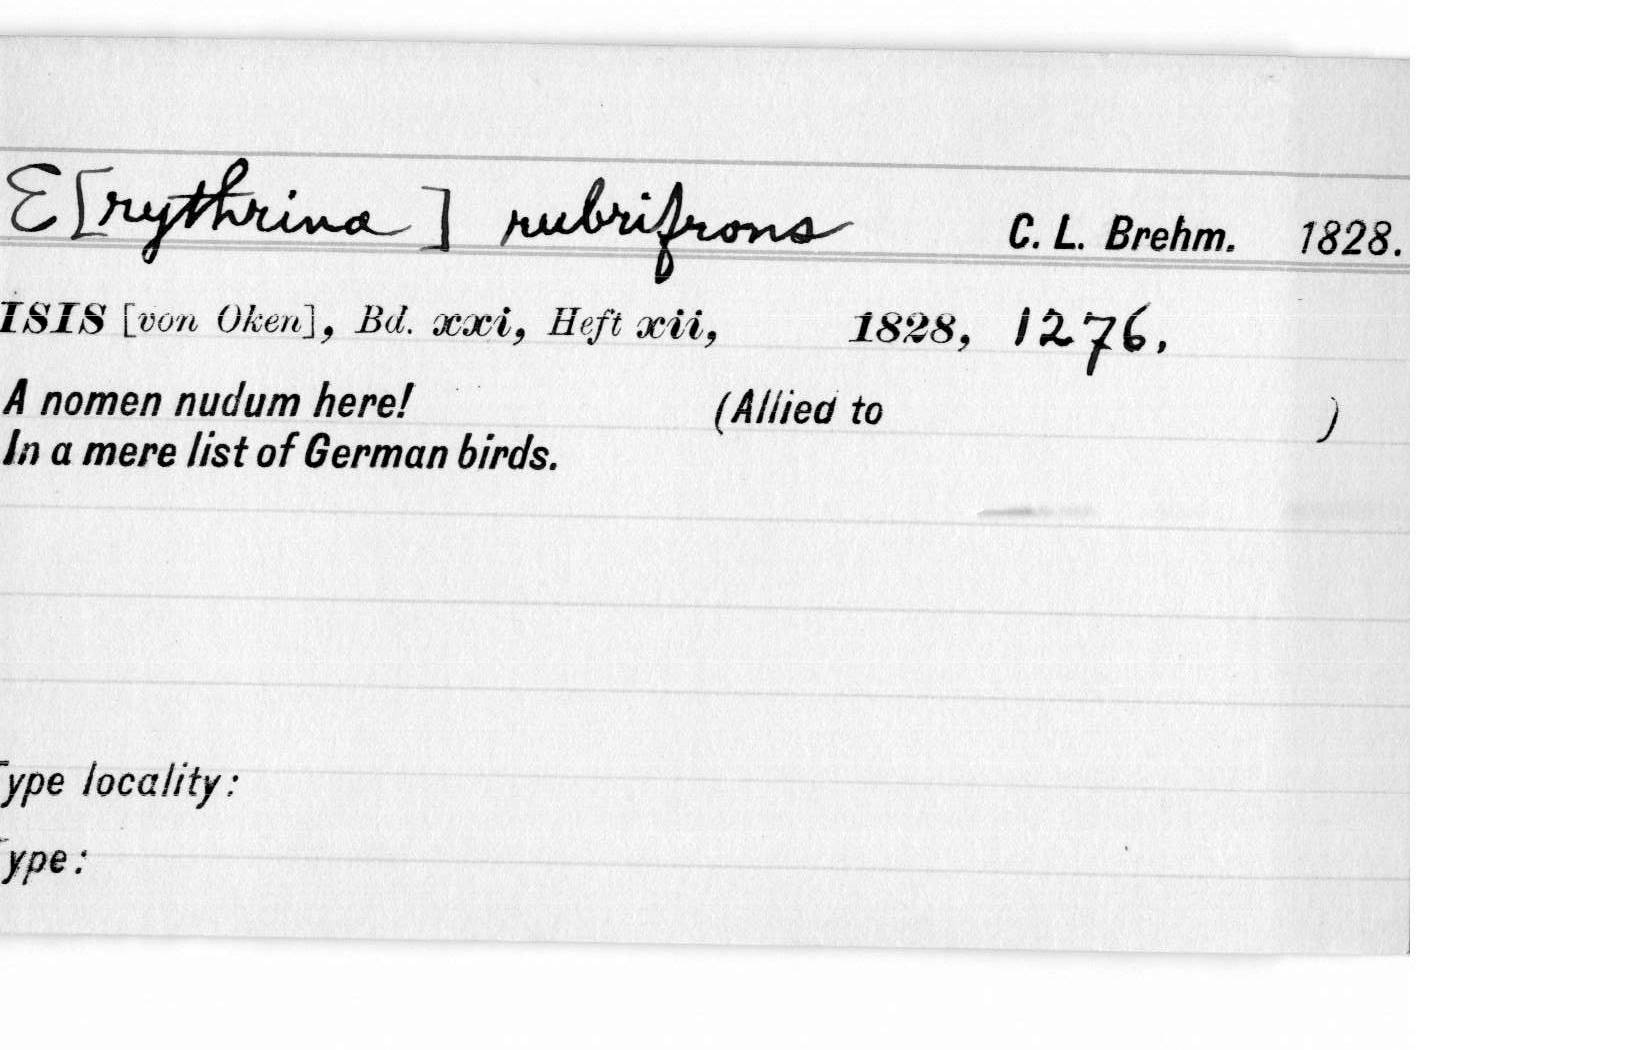 E[rythrina] rubrifrons C. L. Brehm. 1828.
ISIS [von Oken], Bd. xxi, Heft xii, 1828, 1276.
A nomen nudum here! (Allied to )
In a mere list of German birds.
ype locality:
ype: